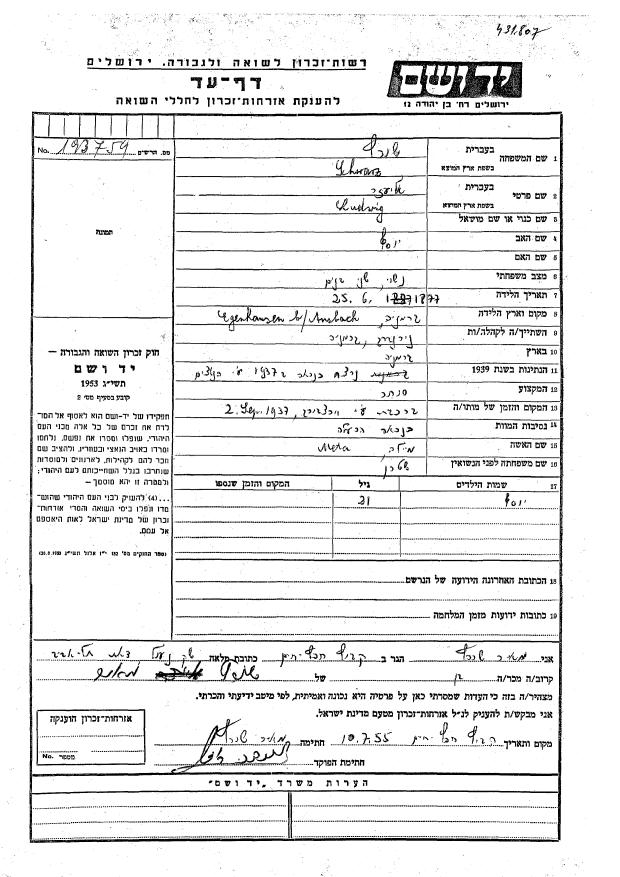 431.807
רשות-זכרון לשואה ולגבורה, ירושלים
דף-עד
להענקת אזרחות-זכרון לחללי השואה
יד ושם
ירושלים רח' בן יהודה 12
מס. הרשים No. 193759
תמונה
חוק זכרון השואה והגבורה –
יד ושם
תשי"ג 1953
קובע בסעיף מס' 2
תפקידו של יד-ושם הוא לאסוף אל המו-
לדת את זכרם של כל אלה מבני העם
היהודי, שנפלו ומסרו את נפשם, נלחמו
ומרדו באויב הנאצי ובעוזריו, ולהציב שם
וזכר להם לקהילות, לארגונים ולמוסדות
שנחרבו בגלל השתייכותם לעם היהודי;
ולמטרה זו יהא מוסמך –
...(4) להעניק לבני העם היהודי שהוש-
מדו ונפלו בימי השואה והמרי אזרחות-
זכרון של מדינת ישראל לאות היאספם
אל עמם.
1 שם המשפחה בעברית שורץ
בשפת ארץ המוצא Schwarz
2 שם פרטי בעברית אליעזר
בשפת ארץ המוצא Ludwig
3 שם כנוי או שם מושאל
4 שם האב יוסף
5 שם האם
6 מצב משפחתי נשוי,
7 תאריך הלידה 25. 6. 1877
8 מקום וארץ הלידה Egenhausen b/Ansbach, גרמניה
9 השתייך/ה לקהלה/ות נירנברג, גרמניה
10 בארץ גרמניה
11 הנתינות בשנת 1939 נרצח בדכאו ב 1937 ע"י הנאצים
12 המקצוע סוחר
13 המקום והזמן של מותו/ה 2. Sep. 1937
14 נסיבות המוות
15 שם האשה Meta
16 שם משפחתה לפני הנשואין שטרן
17 שמות הילדים גיל המקום והזמן שנספו
יוסף 21
18 הכתובת האחרונה הידועה של הנרשם
19 כתובות ידועות מזמן המלחמה
אני מאיר שורץ הגר ב קבוץ חפץ-חיים כתובת מלאה דאר תל-אביב
קרוב/ה מכר/ה בן של
מצהיר/ה בזה כי העדות שמסרתי כאן על פרטיה היא נכונה ואמיתית, לפי מיטב ידיעתי והכרתי.
אני מבקש/ת להעניק לנ"ל אזרחות-זכרון מטעם מדינת ישראל.
מקום ותאריך קבוץ חפץ-חיים 10.7.55 חתימה מאיר שורץ
חתימת הפוקד
אזרחות-זכרון הוענקה
מספר No.
הערות משרד „יד ושם"